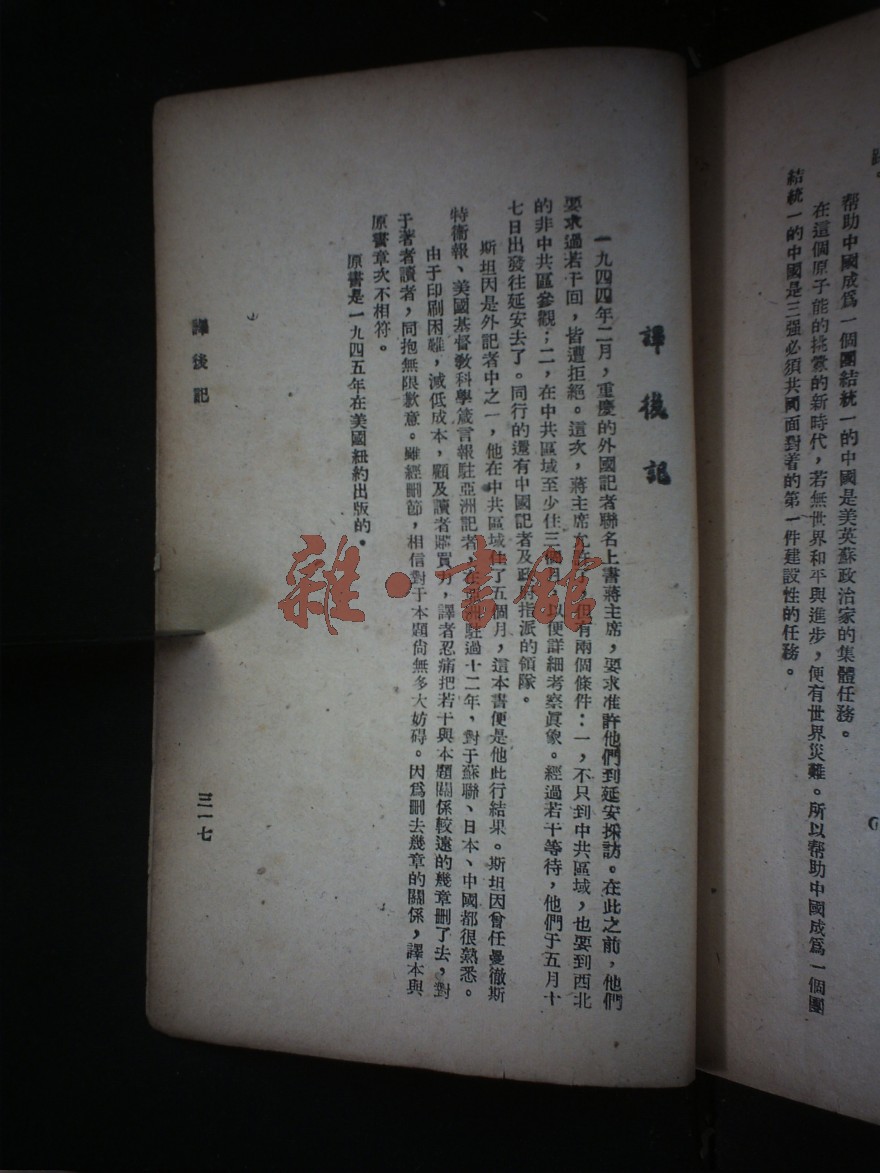 帮助中國成爲一個團結統一的中國是美英蘇政治家的集體任務。
在這個原子能的挑釁的新時代，若無世界和平與進步，便有世界災難。所以帮助中國成爲一個團
結統一的中國是三强必須共同面對着的第一件建設性的任務。
譯後記
一九四四年二月，重慶的外國記者聯名上書蔣主席，要求准許他們到延安採訪。在此之前，他們
要求過若干回，皆遭拒絕。這次，蔣主席允許了，但有兩個條件：一，不只到中共區域，也要到西北
的非中共區參觀；二，在中共區域至少住三個月，以便詳細考察眞象。經過若干等待，他們于五月十
七日出發往延安去了。同行的還有中國記者及政府指派的領隊。
斯坦因是外記者中之一，他在中共區域住了五個月，這本書便是他此行結果。斯坦因曾任曼徹斯
特衞報、美國基督敎科學箴言報駐亞洲記者，在亞洲駐過十二年，對于蘇聯、日本、中國都很熟悉。
由于印刷困難，減低成本，顧及讀者購買力，譯者忍痛把若干與本題關係較遠的幾章删了去，對
于著者讀者，同抱無限歉意。雖經删節，相信對于本題尙無多大妨碍。因爲删去幾章的關係，譯本與
原書章次不相符。
原書是一九四五年在美國紐約出版的。
譯後記
三一七
雜·書館